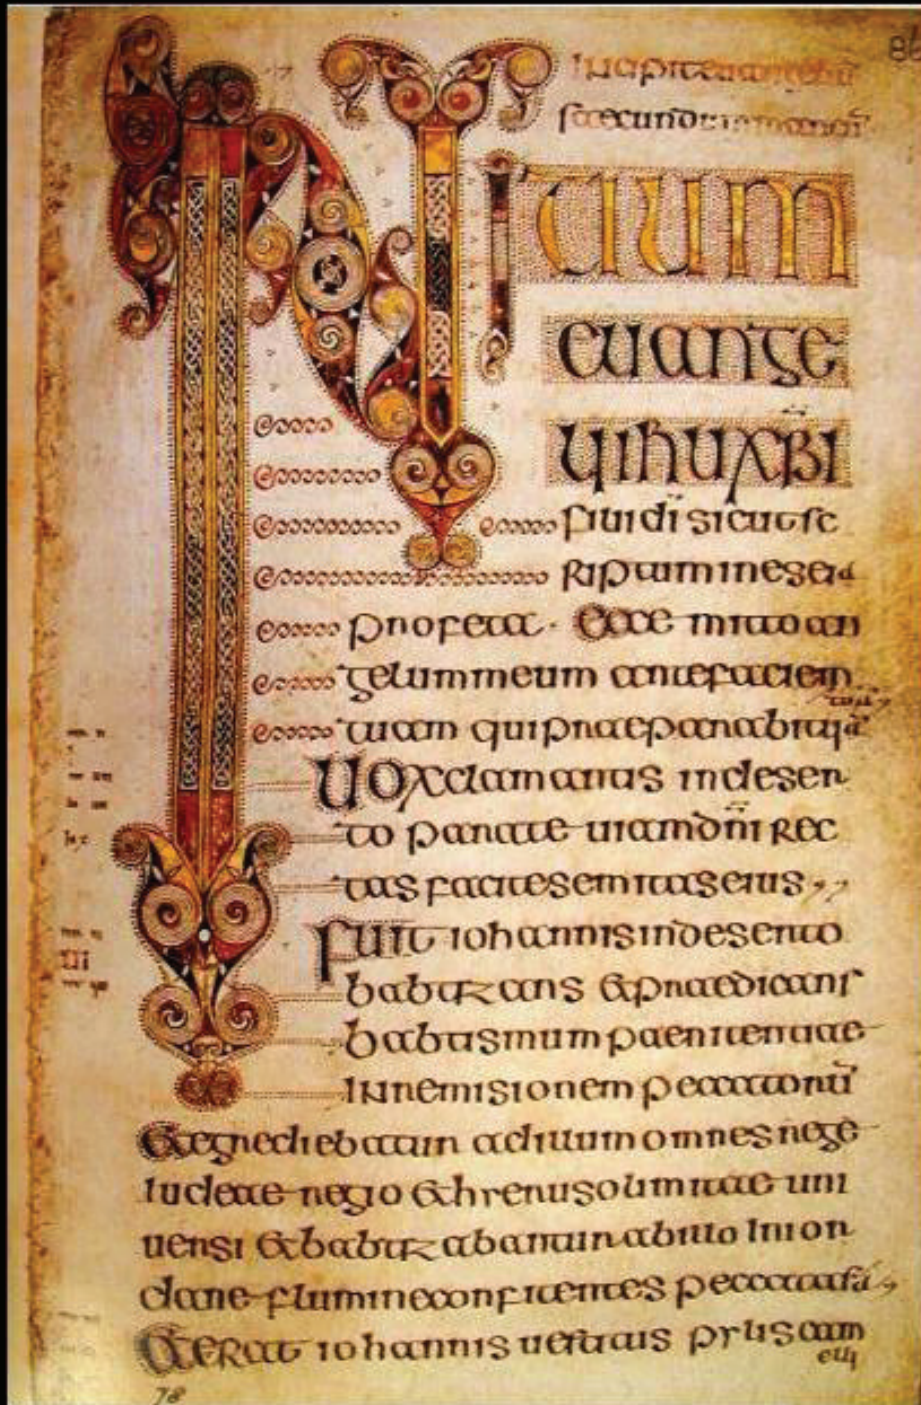 INITIUM
euange
lii ihu xpi
fili di sicut sc
riptum in eseia
profeta · Ecce mitto an
gelum meum ante faciem
tuam qui praeparabit uiā
Uox clamantis in deser
to parate uiam dn̄i rec
tas facite semitas eius
Fuit iohannis in deserto
babtizans & praedicans
babtismum paenitentiae
in remisionem peccatorū
& egrediebatur ad illum omnes
iudeae regio & hierusolimitae uni
uersi & babtizabantur ab illo in ior
dane flumine confitentes peccata sua
& erat iohannis uestitus pylis cam
eli
78